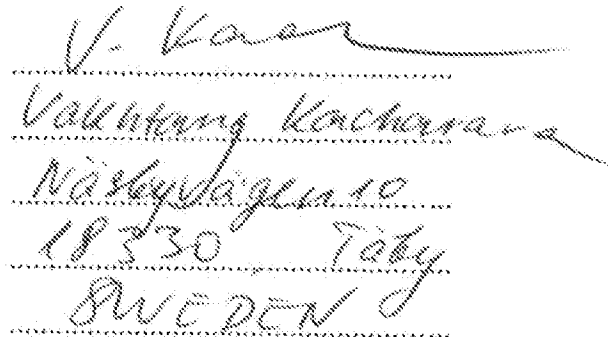 V. Kac
Vakhtang Kacharava
Näsbyvägen 10
18330 Täby
SWEDEN